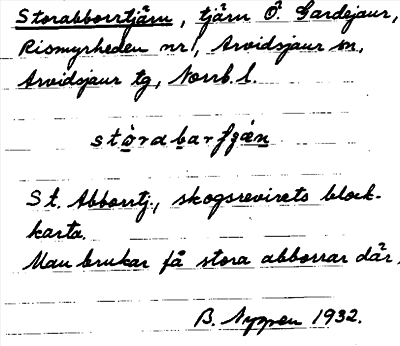 Storabborrtjärn, tjärn Ö. Gardejaur,
Rismyrheden nr 1, Arvidsjaur sn,
Arvidsjaur tg, Norrb. l.
stòrabarʃæ̀n
St. Abborrtj., skogsrevirets block-
karta.
Man brukar få stora abborrar där.
B. Nygren 1932.